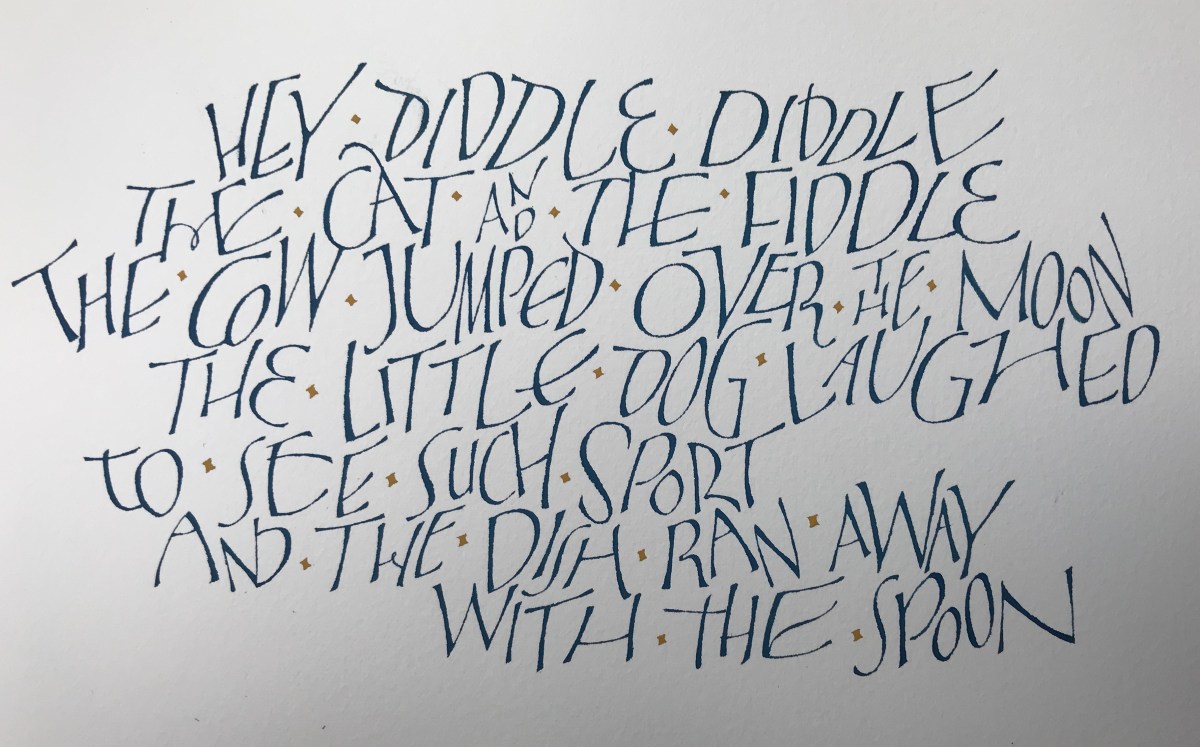 HEY · DIDDLE · DIDDLE
THE · CAT · AND · THE · FIDDLE
THE · COW · JUMPED · OVER · THE · MOON
THE · LITTLE · DOG · LAUGHED
TO · SEE · SUCH · SPORT
AND · THE · DISH · RAN · AWAY
WITH · THE · SPOON